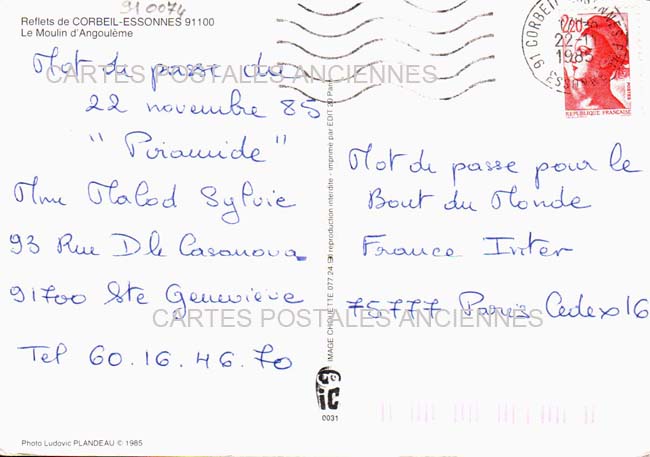 91 0074
Reflets de CORBEIL-ESSONNES 91100
Le Moulin d'Angoulème
Mot de passe du
22 novembre 85
"Piramide"
Mme Malod Sylvie
93 Rue Dle Casanova
91700 Ste Geneviève
Tel 60.16.46.70
Photo Ludovic PLANDEAU © 1985
CARTES POSTALES ANCIENNES
CARTES POSTALES ANCIENNES
IMAGE CHOUETTE 077 24 reproduction interdite - imprimé par EDIT 20 Paris
ic
0031
91 CORBEIL ESSONNES
22-11
1985
2,20
REPUBLIQUE FRANÇAISE
Mot de passe pour le
Bout du Monde
France Inter
75777 Paris Cedex 16